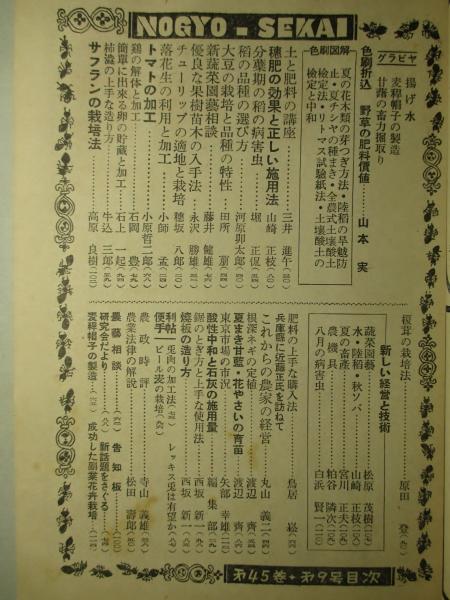 NOGYO-SEKAI
グラビヤ
揚げ水
麥稈帽子の製造
甘藷の畜力掘取り
色刷折込 野草の肥料價値……山本 実
色刷図解
夏の花木類の芽つぎ方法・陸稻の旱魃防
止・夏チシャの種まき・全農式土壤酸土
檢定法・リトマス試驗紙法・土壤酸土の
檢定と中和
土と肥料の講座……三井 進午
穗肥の効果と正しい施用法……山崎 正枝
分蘖期の稻の病害虫……堀 正侃
稻の品種の選び方……河原卯太郎
大豆の栽培と品種の特性……田所
新蔬菜園藝相談……藤井 健雄
優良な果樹苗木の入手法……永沢 勝雄
チューリップの適地と栽培……穗坂 八郎
落花生の利用と加工……小師 孟
トマトの加工……小原哲二郎
鶏の解体と加工……石岡 豊
簡單に出來る卵の貯藏と加工……石上 一起
柿澁の上手な造り方……牛込 三郎
サフランの栽培法……高原 良樹
榎茸の栽培法……原田 登
新しい経営と技術
蔬菜園藝……松原 茂樹
水・陸稻・秋ソバ……山崎 正枝
夏の畜産……宮川 正夫
農機具……粕谷 隣次
八月の病害虫……白浜 賢一
肥料の上手な購入法……鳥居
兵庫縣に近藤正氏を訪ねて
これからの農家の経営……丸山 義二
根深ネギの定植……渡辺 齊
夏まき甘藍・花やさいの育苗……渡辺 齊
東京市場の市況……矢部 幸雄
酸性中和と石灰の施用量……編集部
鋸のとぎ方と上手な使用法……西坂 新一
燒板の造り方……西坂 新一
利帖
便手
兎肉の加工法 レッキス兎は有望か
ビール麦の栽培
農政時評……寺山 義雄
農業法律の解説……松田 壽郎
農藝相談 告知板
研究会だより 新話題をさぐる
麦稈帽子の製造 成功した副業花卉栽培
第45巻・第9号目次